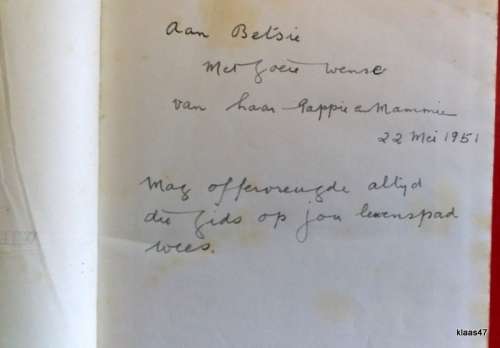 Aan Betsie
Met goeie wense
van haar Pappie en Mammie
22 Mei 1951
Mag offervreugde altyd
die gids op jou lewenspad
wees.
klaas47